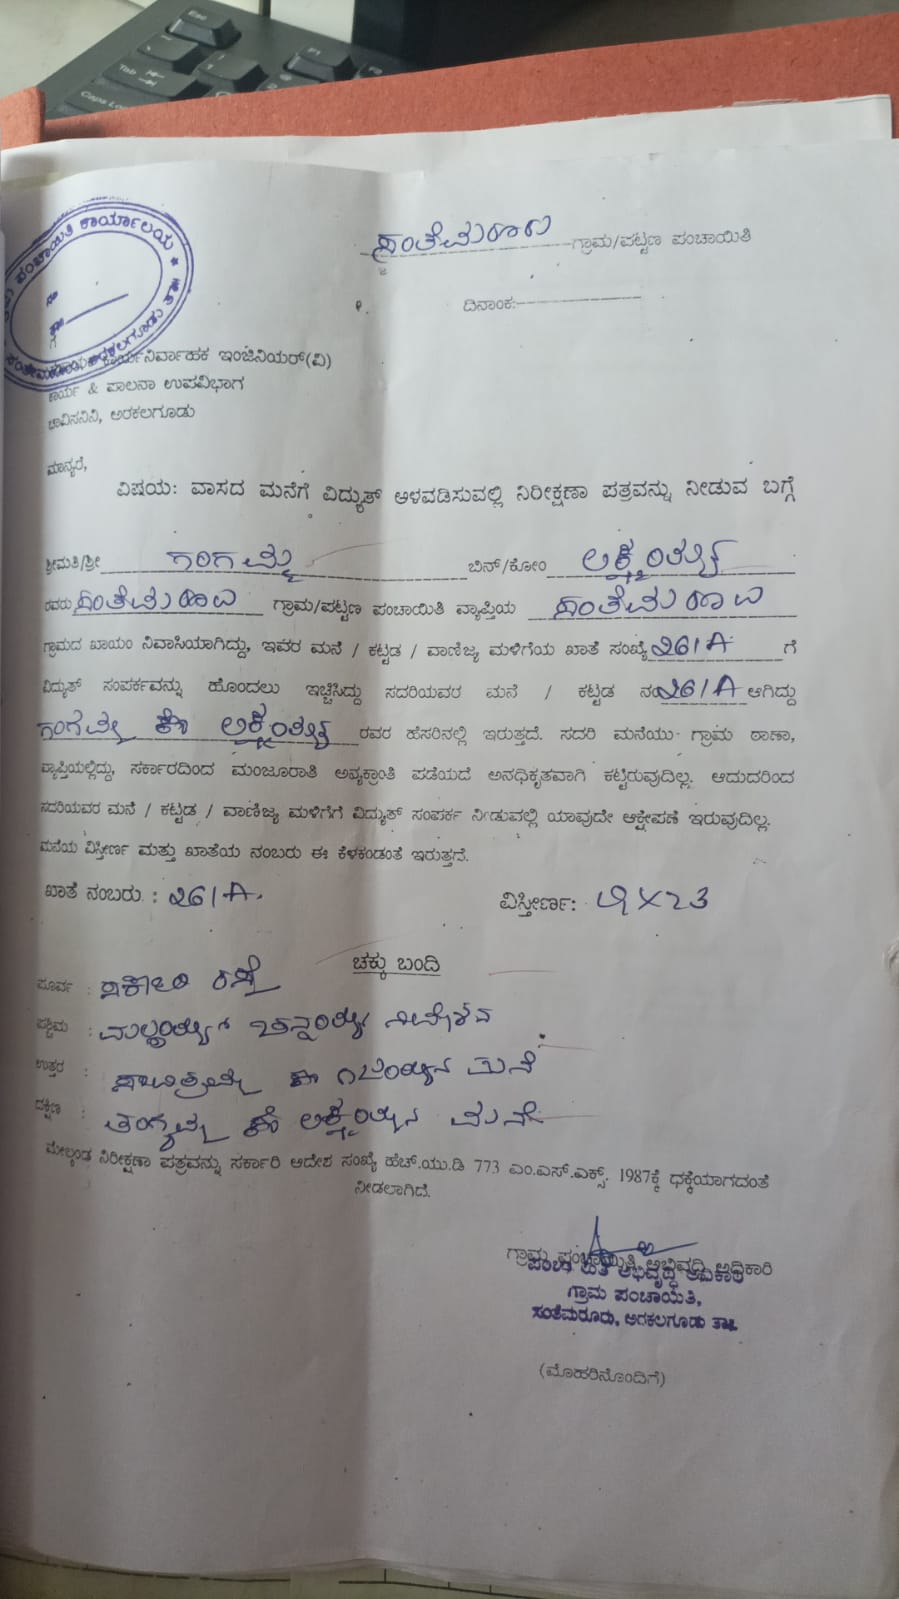 ಪಂಚಾಯಿತಿ ಕಾರ್ಯಾಲಯ
ಅರಕಲಗೂಡು ತಾ||
ಸಂತೆಮರೂರು ಗ್ರಾಮ/ಪಟ್ಟಣ ಪಂಚಾಯಿತಿ
ದಿನಾಂಕ:
ಕಾರ್ಯನಿರ್ವಾಹಕ ಇಂಜಿನಿಯರ್(ವಿ)
ಕಾರ್ಯ & ಪಾಲನಾ ಉಪವಿಭಾಗ
ಚಾವಿಸನಿನಿ, ಅರಕಲಗೂಡು
ಮಾನ್ಯರೆ,
ವಿಷಯ: ವಾಸದ ಮನೆಗೆ ವಿದ್ಯುತ್ ಅಳವಡಿಸುವಲ್ಲಿ ನಿರೀಕ್ಷಣಾ ಪತ್ರವನ್ನು ನೀಡುವ ಬಗ್ಗೆ
ಶ್ರೀಮತಿ/ಶ್ರೀ ಗಂಗಮ್ಮ ಬಿನ್/ಕೋಂ ಲಕ್ಷ್ಮಯ್ಯ
ರವರು ಸಂತೆಮರೂರು ಗ್ರಾಮ/ಪಟ್ಟಣ ಪಂಚಾಯಿತಿ ವ್ಯಾಪ್ತಿಯ ಸಂತೆಮರೂರು
ಗ್ರಾಮದ ಖಾಯಂ ನಿವಾಸಿಯಾಗಿದ್ದು, ಇವರ ಮನೆ / ಕಟ್ಟಡ / ವಾಣಿಜ್ಯ ಮಳಿಗೆಯ ಖಾತೆ ಸಂಖ್ಯೆ 261/A ಗೆ
ವಿದ್ಯುತ್ ಸಂಪರ್ಕವನ್ನು ಹೊಂದಲು ಇಚ್ಛಿಸಿದ್ದು ಸದರಿಯವರ ಮನೆ / ಕಟ್ಟಡ ನಂ 261/A ಆಗಿದ್ದು
ಗಂಗಮ್ಮ ಕೋ ಲಕ್ಷ್ಮಯ್ಯ ರವರ ಹೆಸರಿನಲ್ಲಿ ಇರುತ್ತದೆ. ಸದರಿ ಮನೆಯು ಗ್ರಾಮ ಠಾಣಾ,
ವ್ಯಾಪ್ತಿಯಲ್ಲಿದ್ದು, ಸರ್ಕಾರದಿಂದ ಮಂಜೂರಾತಿ ಅವ್ಯಕ್ರಾಂತಿ ಪಡೆಯದೆ ಅನಧಿಕೃತವಾಗಿ ಕಟ್ಟಿರುವುದಿಲ್ಲ. ಆದುದರಿಂದ
ಸದರಿಯವರ ಮನೆ / ಕಟ್ಟಡ / ವಾಣಿಜ್ಯ ಮಳಿಗೆಗೆ ವಿದ್ಯುತ್ ಸಂಪರ್ಕ ನೀಡುವಲ್ಲಿ ಯಾವುದೇ ಆಕ್ಷೇಪಣೆ ಇರುವುದಿಲ್ಲ.
ಮನೆಯ ವಿಸ್ತೀರ್ಣ ಮತ್ತು ಖಾತೆಯ ನಂಬರು ಈ ಕೆಳಕಂಡಂತೆ ಇರುತ್ತದೆ.
ಖಾತೆ ನಂಬರು : 261/A. ವಿಸ್ತೀರ್ಣ:
ಚಕ್ಕು ಬಂದಿ
ಪೂರ್ವ : ರಸ್ತೆ
ಪಶ್ಚಿಮ : ಚನ್ನಯ್ಯ ನಿವೇಶನ
ಉತ್ತರ : ಸಾವಿತ್ರಮ್ಮ ಕೋ ಮನೆ
ದಕ್ಷಿಣ : ತಂಗ್ಯಮ್ಮ ಕೋ ಲಕ್ಷ್ಮಯ್ಯನ ಮನೆ
ಮೇಲ್ಕಂಡ ನಿರೀಕ್ಷಣಾ ಪತ್ರವನ್ನು ಸರ್ಕಾರಿ ಆದೇಶ ಸಂಖ್ಯೆ ಹೆಚ್.ಯು.ಡಿ 773 ಎಂ.ಎಸ್.ಎಕ್ಸ್. 1987ಕ್ಕೆ ಧಕ್ಕೆಯಾಗದಂತೆ
ನೀಡಲಾಗಿದೆ.
ಗ್ರಾಮ ಪಂಚಾಯಿತಿ ಅಭಿವೃದ್ಧಿ ಅಧಿಕಾರಿ
ಪಂಚಾಯಿತಿ ಅಭಿವೃದ್ಧಿ ಅಧಿಕಾರಿ
ಗ್ರಾಮ ಪಂಚಾಯಿತಿ,
ಸಂತೆಮರೂರು, ಅರಕಲಗೂಡು ತಾ||
(ಮೊಹರಿನೊಂದಿಗೆ)